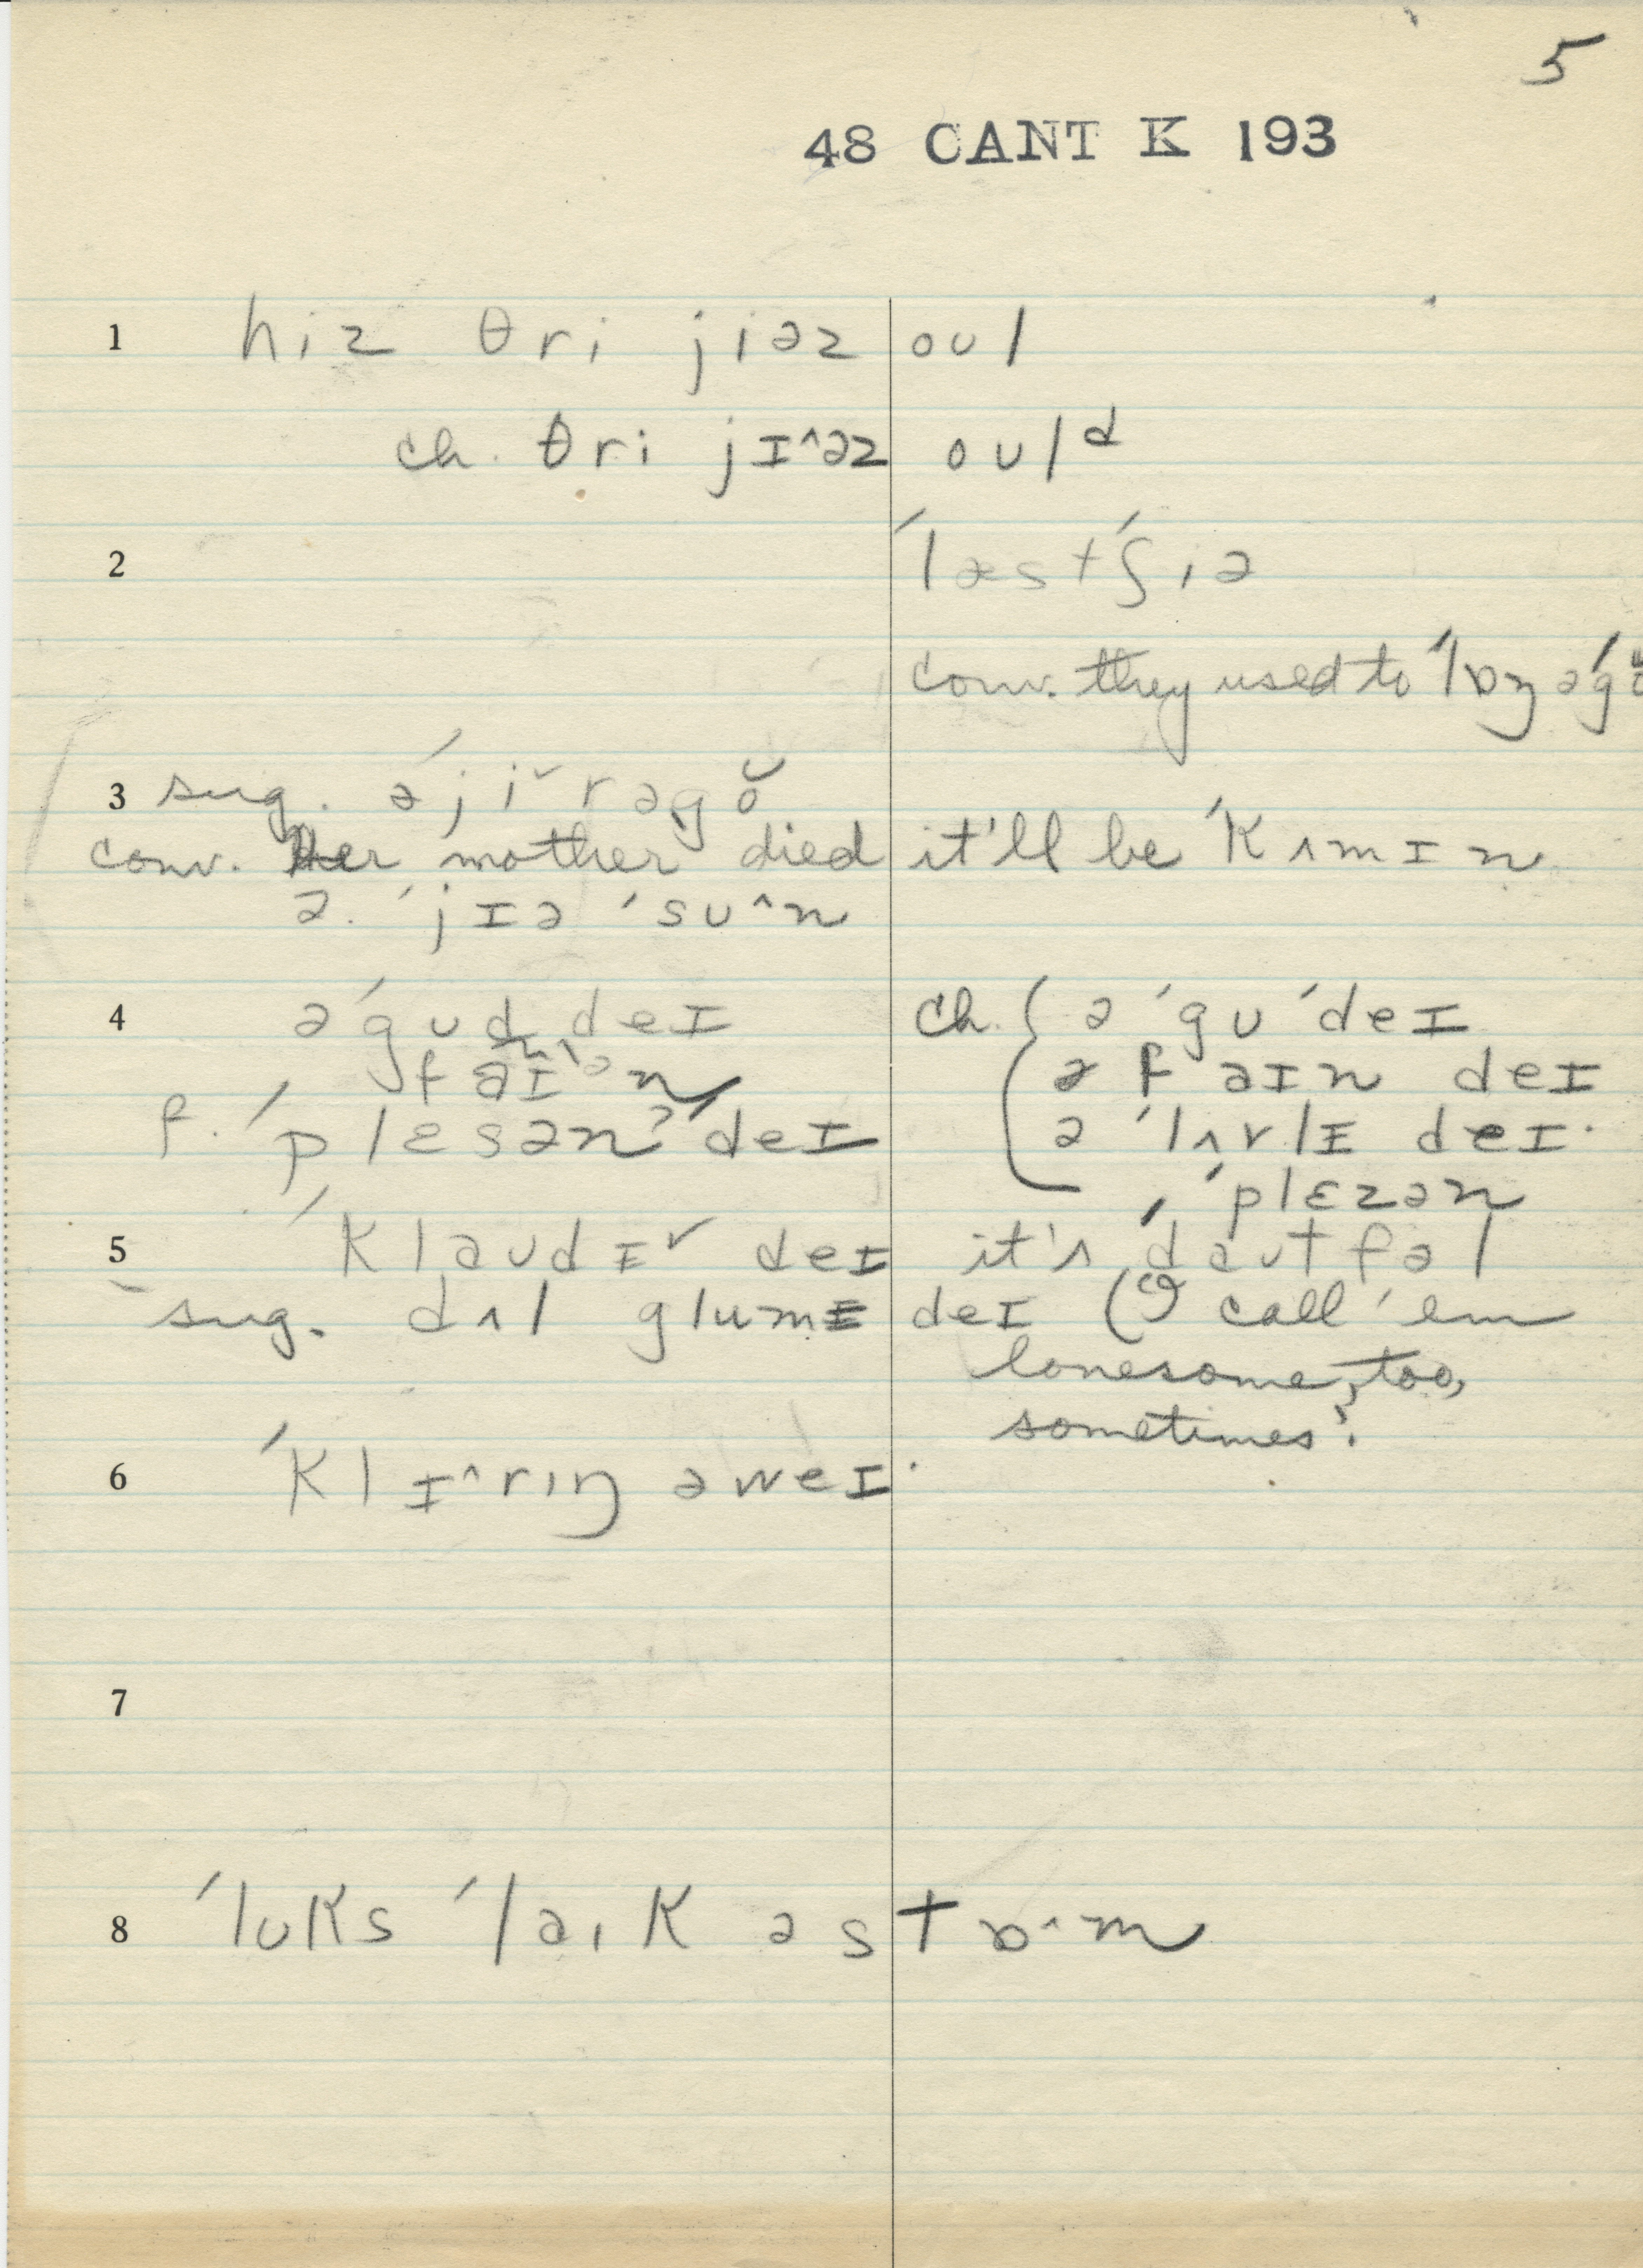 5
48 CANT K 193
1 hiz θri jiəz oʊl
ch. θri jɪ^əz oʊlᵈ
2 ˈlæsˈtʃiə
conv. they used to ˈlɒŋ əˈg
3 sug. əˈjiˇrəgŏ
conv. Her mother died it'll be ˈkʌmɪn
ə ˈjɪə ˈsʊ^n
4 əˈgʊd deɪ ch. { ə ˈgʊ ˈdeɪ
ə faɪn deɪ
f. ˈplɛsənʔˈdeɪ ə ˈlʌvlɪ deɪ.
ˈplɛzən
5 ˈklaʊdɪˇ deɪ it's ˈdaʊtfəl
sug. dʌl glumɪ deɪ (I call 'em
lonesome, too,
sometimes.
6 ˈklɪ^rɪŋ əweɪ.
7
8 ˈlʊks ˈlaɪk ə stɒ^m